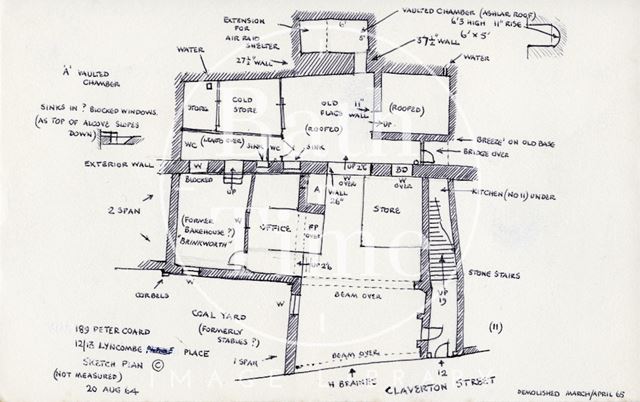 VAULTED CHAMBER (ASHLAR ROOF)
6'3 HIGH 11" RISE
6' x 5'
EXTENSION
FOR
AIR RAID
SHELTER
6'
5'
37½" WALL
27½" WALL
WATER
WATER
'A' VAULTED
CHAMBER
SINKS IN ? BLOCKED WINDOWS.
(AS TOP OF ALCOVE SLOPES
DOWN)
STORE
COLD
STORE
OLD
FLAGS
(ROOFED)
11"
WALL
UP
(ROOFED)
WC
(LEANTO OVER)
WC
SINK
SINK
'BREEZE' ON OLD BASE
BRIDGE OVER
EXTERIOR WALL
W
UP 2'6
W
OVER
BD
W
OVER
BLOCKED
UP
WALL
26"
KITCHEN (No 11) UNDER
A
2 SPAN
W
STORE
(FORMER
BAKEHOUSE ?)
"BRINKWORTH"
OFFICE
FP
OVER
UP 2'6
STONE STAIRS
CORBELS
W
W
BEAM OVER
UP
19
COAL YARD
(FORMERLY
STABLES ?)
(11)
189 PETER COARD
12/13 LYNCOMBE PLACE
SKETCH PLAN ©
(NOT MEASURED)
20 AUG 64
1 SPAN
BEAM OVER
UP
12
CLAVERTON STREET
DEMOLISHED MARCH/APRIL 65